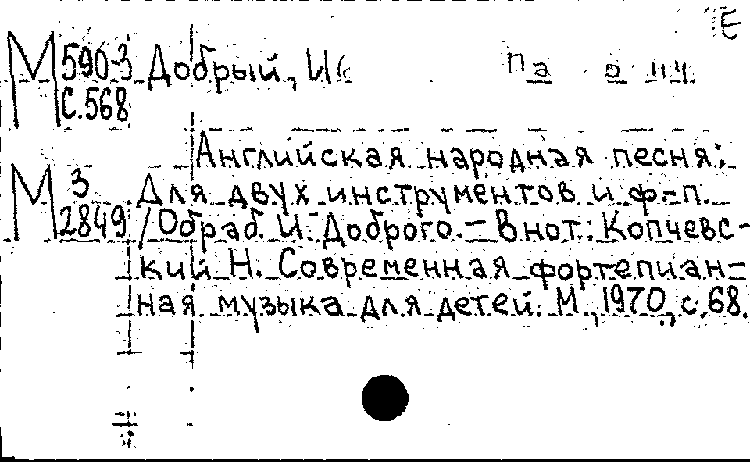 Е
М 590-3 Добрый, И
с.568
Английская народная песня:
М 3 Для двух инструментов и ф-п.
2849 /Обраб. И. Доброго. – В нот.: Копчевс-
кий Н. Современная фортепиан-
ная музыка для детей. М., 1970, с. 68.